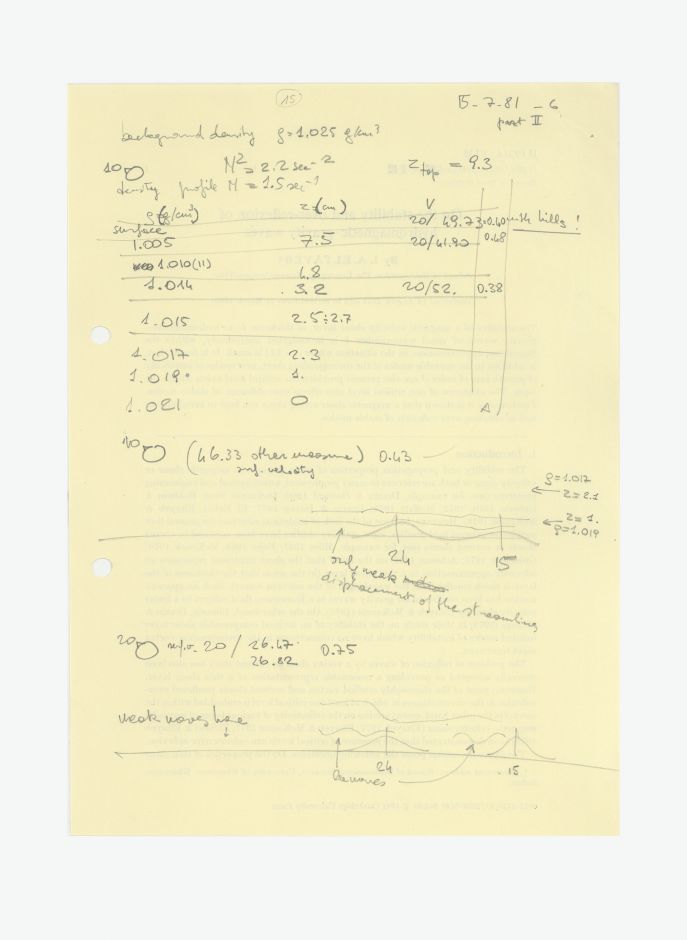 15
15-7-81 - 6
part II
background density ρ=1.025 g/cm³
10 N² = 2.2 sec⁻² z top = 9.3
density profile N = 1.5 sec⁻¹
ρ(g/cm³) z(cm) V
surface 20/49.73=0.40 with hills!
1.005 7.5 20/41.90 0.48
1.010(11)
4.8
1.014 3.2 20/52. 0.38
1.015 2.5÷2.7
1.017 2.3
1.019 1.
1.021 0
A
10 (46.33 other measure) 0.43
surf. velocity
ρ=1.017
← z=2.1
z=1.
← ρ=1.019
24 15
only weak
displacement of the streamlines
20 20/26.47 0.75
26.82
weak waves here
24 15
lee waves